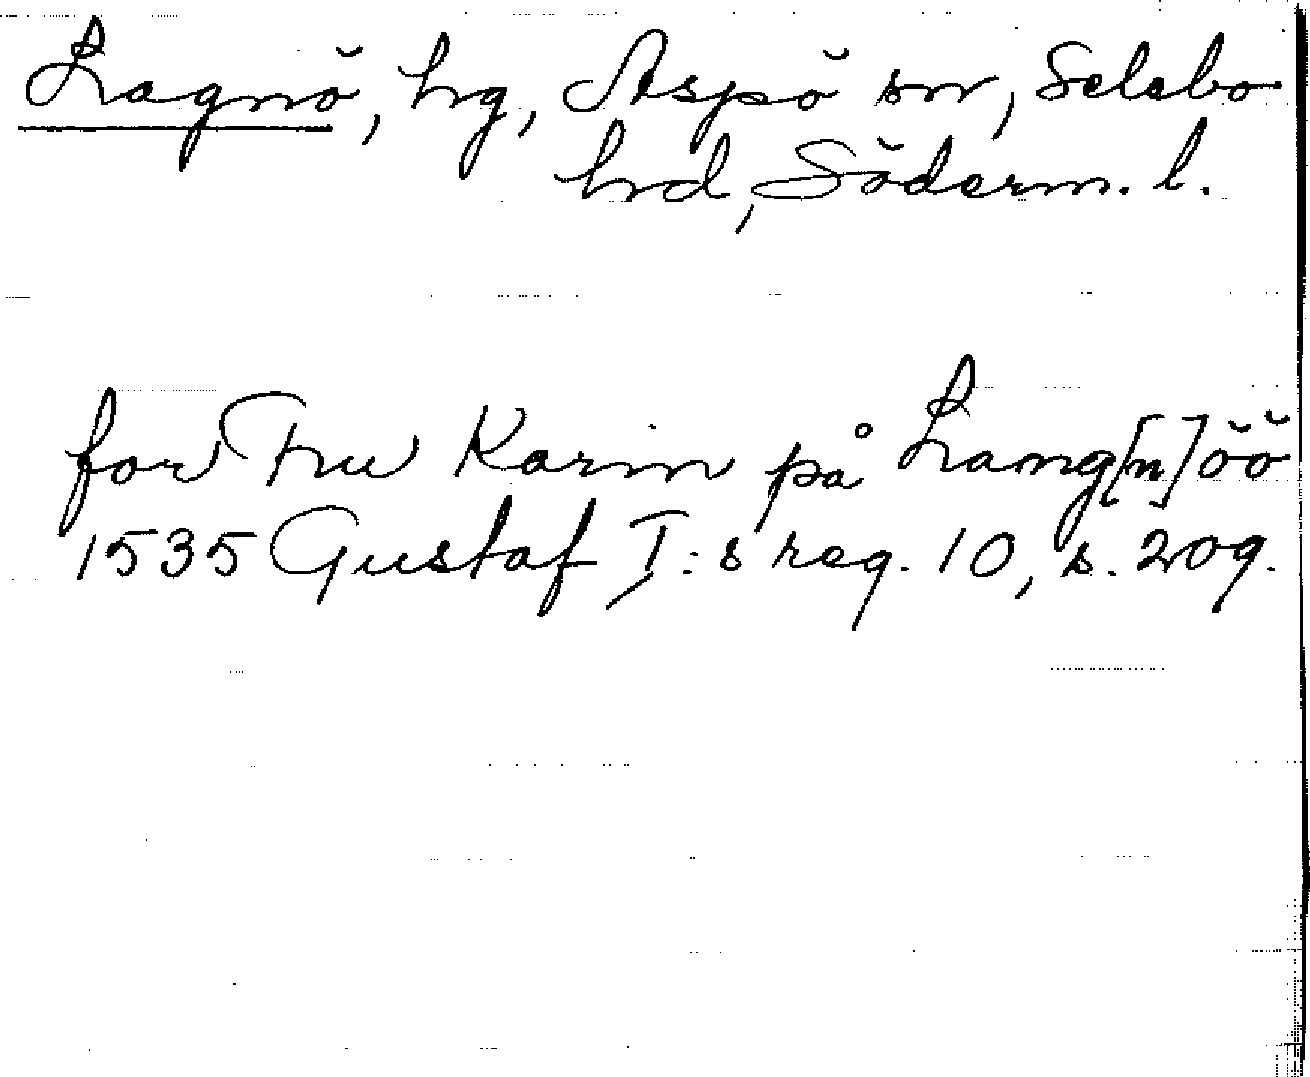 Lagnö, hg, Aspö sn, Selebo
hd, Söderm. l.
for Fru Karin på Lamg[n]öö
1535 Gustaf I:s reg. 10, s. 209.